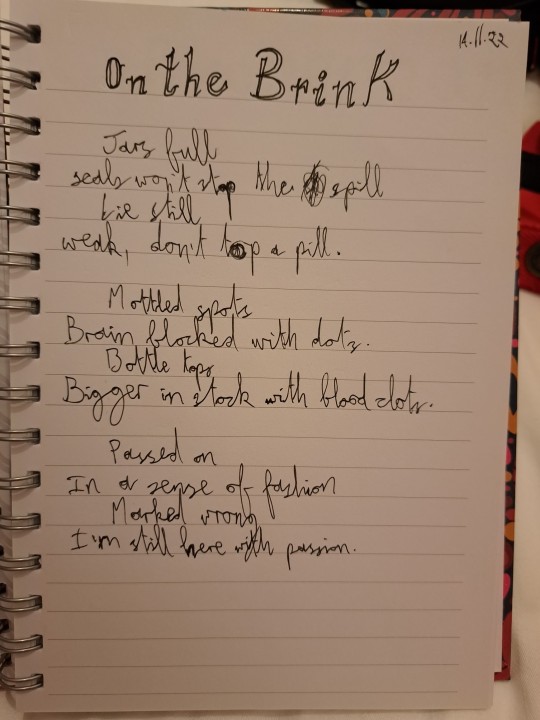 14.11.22
On the Brink
Jars full
seals won't stop the spill
Lie still
weak, don't top a pill.
Mottled spots
Brain blocked with dots.
Bottle tops
Bigger in stock with blood clots.
Passed on
In a sense of fashion
Marked wrong
I'm still here with passion.